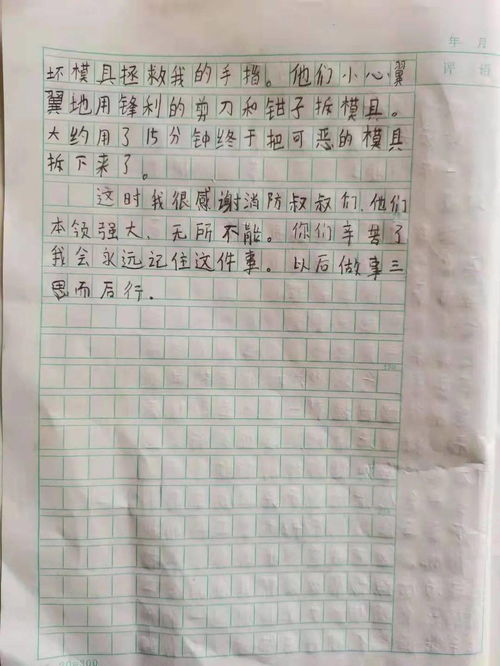 年 月
评 语
坏模具拯救我的手指。他们小心翼
翼地用锋利的剪刀和钳子拆模具。
大约用了15分钟终于把可恶的模具
拆下来了。
这时我很感谢消防叔叔们,他们
本领强大、无所不能。你们辛苦了
我会永远记住这件事。以后做事三
思而后行.